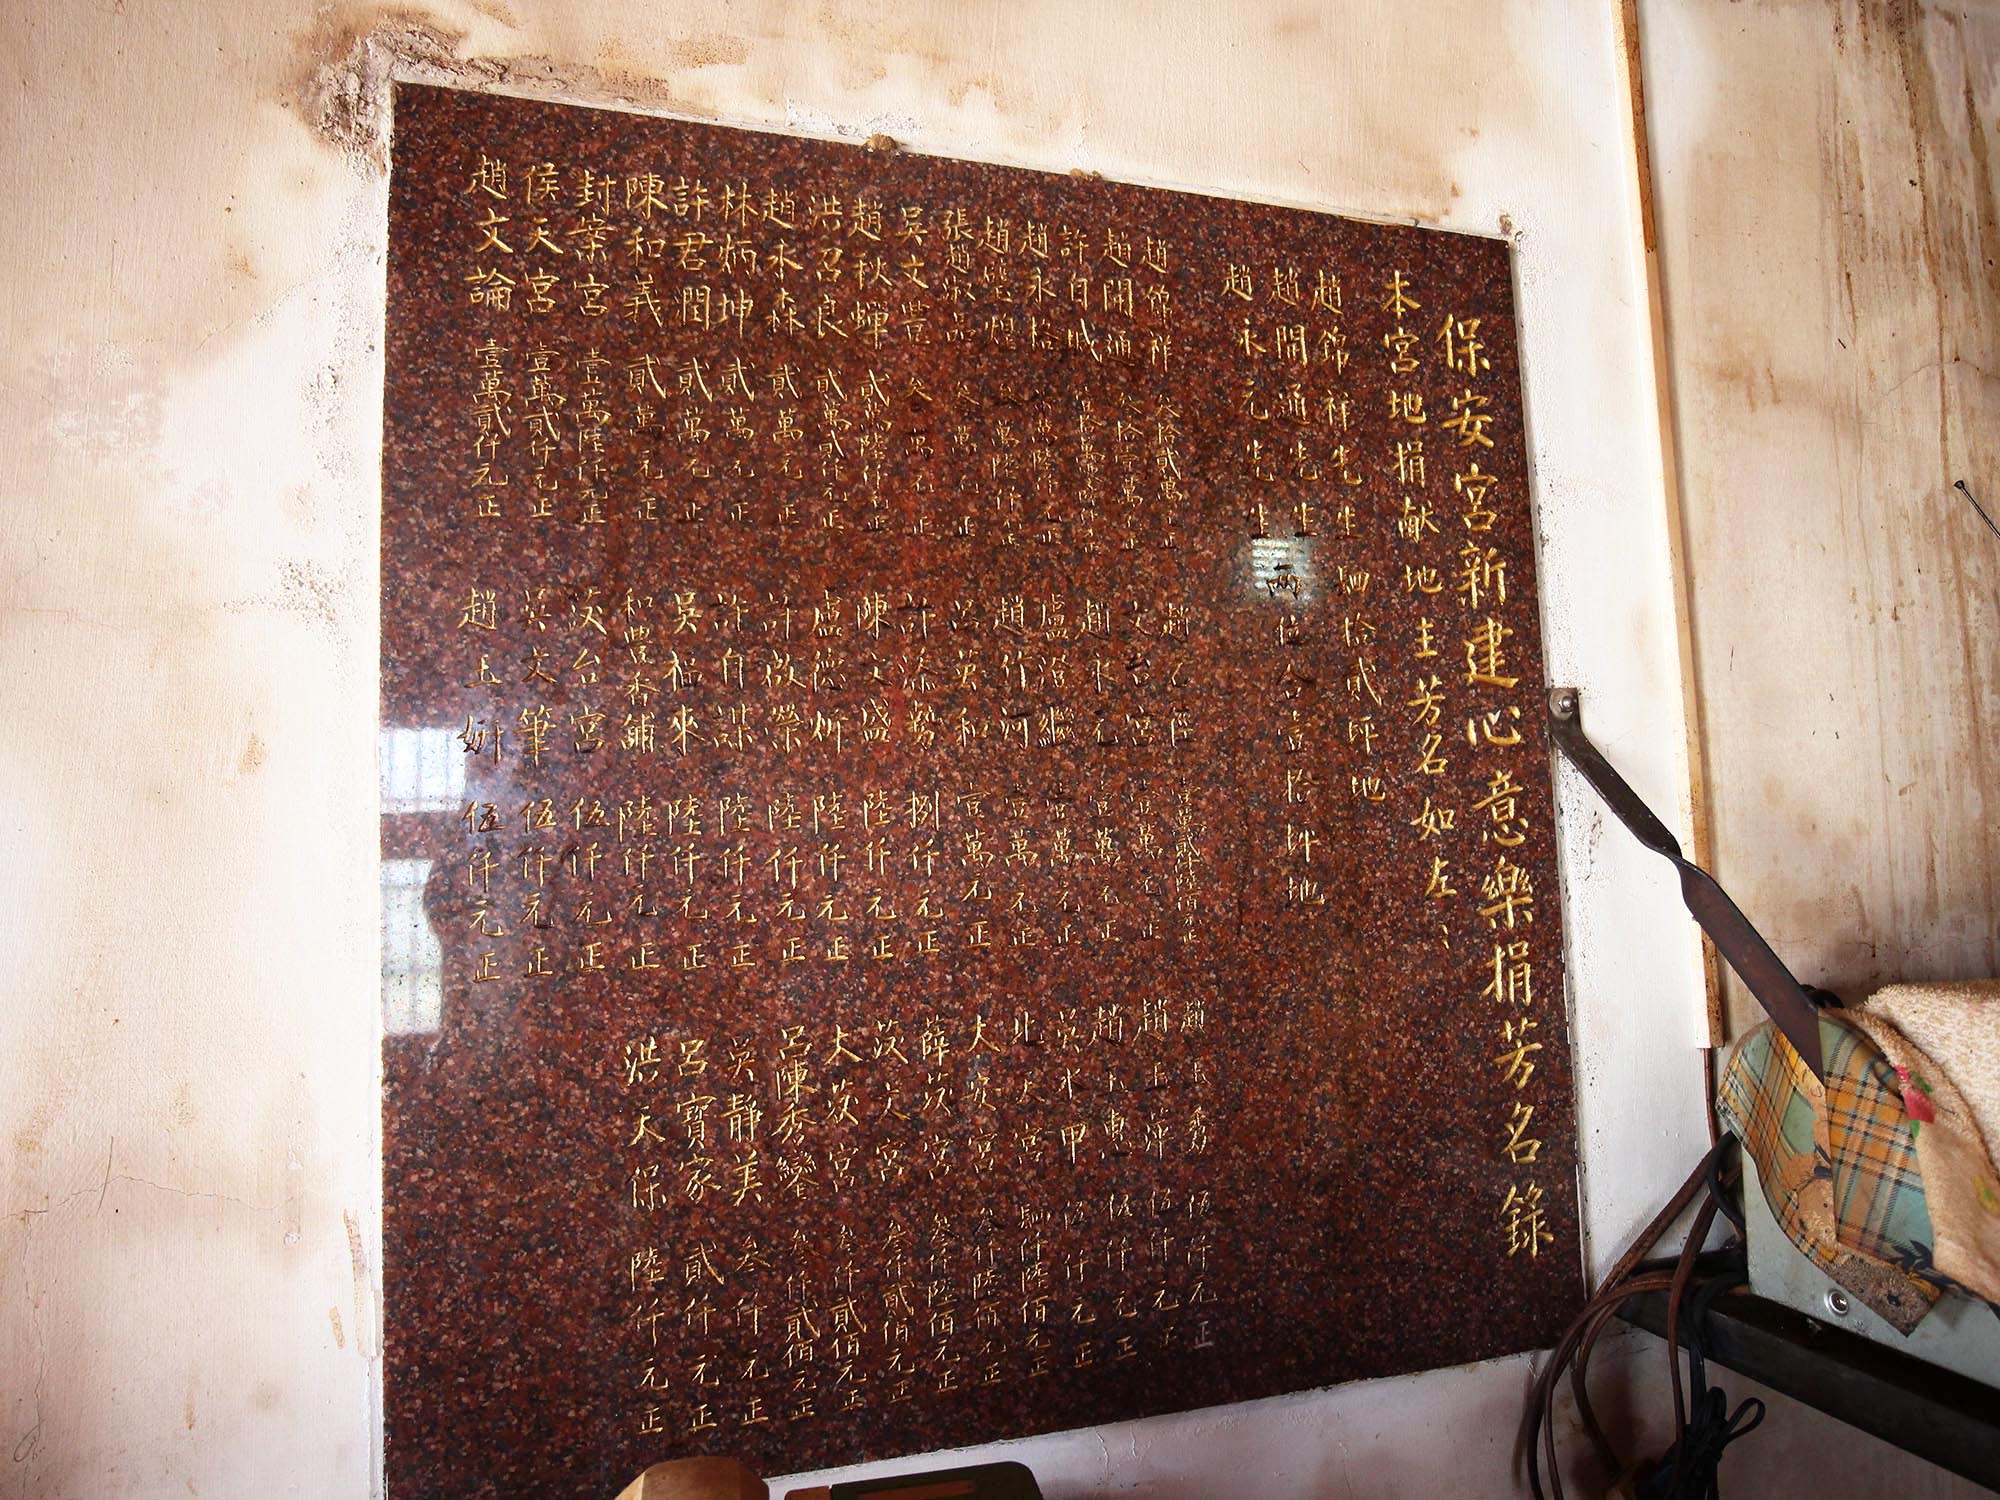 保安宮新建心意樂捐芳名錄
本宮地捐献地主芳名如左：
趙錦祥先生 肆拾貳坪地
趙開通先生
趙永元先生 兩位合壹拾坪地
趙錦祥 叁拾貳萬元正
趙開通 叁拾壹萬元正
許日城
趙永格
趙璧煌 叁萬陸仟元正
張趙淑品 叁萬元正
吳文豐 叁萬元正
趙秋蟬 貳萬陸仟元正
洪召良 貳萬貳仟元正
趙木森 貳萬元正
林炳坤 貳萬元正
許君潤 貳萬元正
陳和義 貳萬元正
封崇宮 壹萬陸仟元正
侯天宮 壹萬貳仟元正
趙文論 壹萬貳仟元正
趙 壹萬貳仟陸佰元正
文台宮 壹萬元正
趙水元 壹萬元正
盧溜繼 壹萬元正
趙竹河 壹萬元正
呂英和 壹萬元正
許添勢 捌仟元正
陳文盛 陸仟元正
盧德炘 陸仟元正
許啟榮 陸仟元正
許自謀 陸仟元正
吳福來 陸仟元正
和豐香舖 陸仟元正
茨台宮 伍仟元正
吳文筆 伍仟元正
趙玉妍 伍仟元正
趙玉秀 伍仟元正
趙玉萍 伍仟元正
趙玉惠 伍仟元正
吳水甲 伍仟元正
北天宮 肆仟陸佰元正
大安宮 叁仟陸佰元正
薛茨宮 叁仟陸佰元正
茨文宮 叁仟貳佰元正
大茨宮 叁仟貳佰元正
呂陳秀鑾 叁仟貳佰元正
吳靜美 叁仟元正
呂寶家 貳仟元正
洪天保 陸仟元正